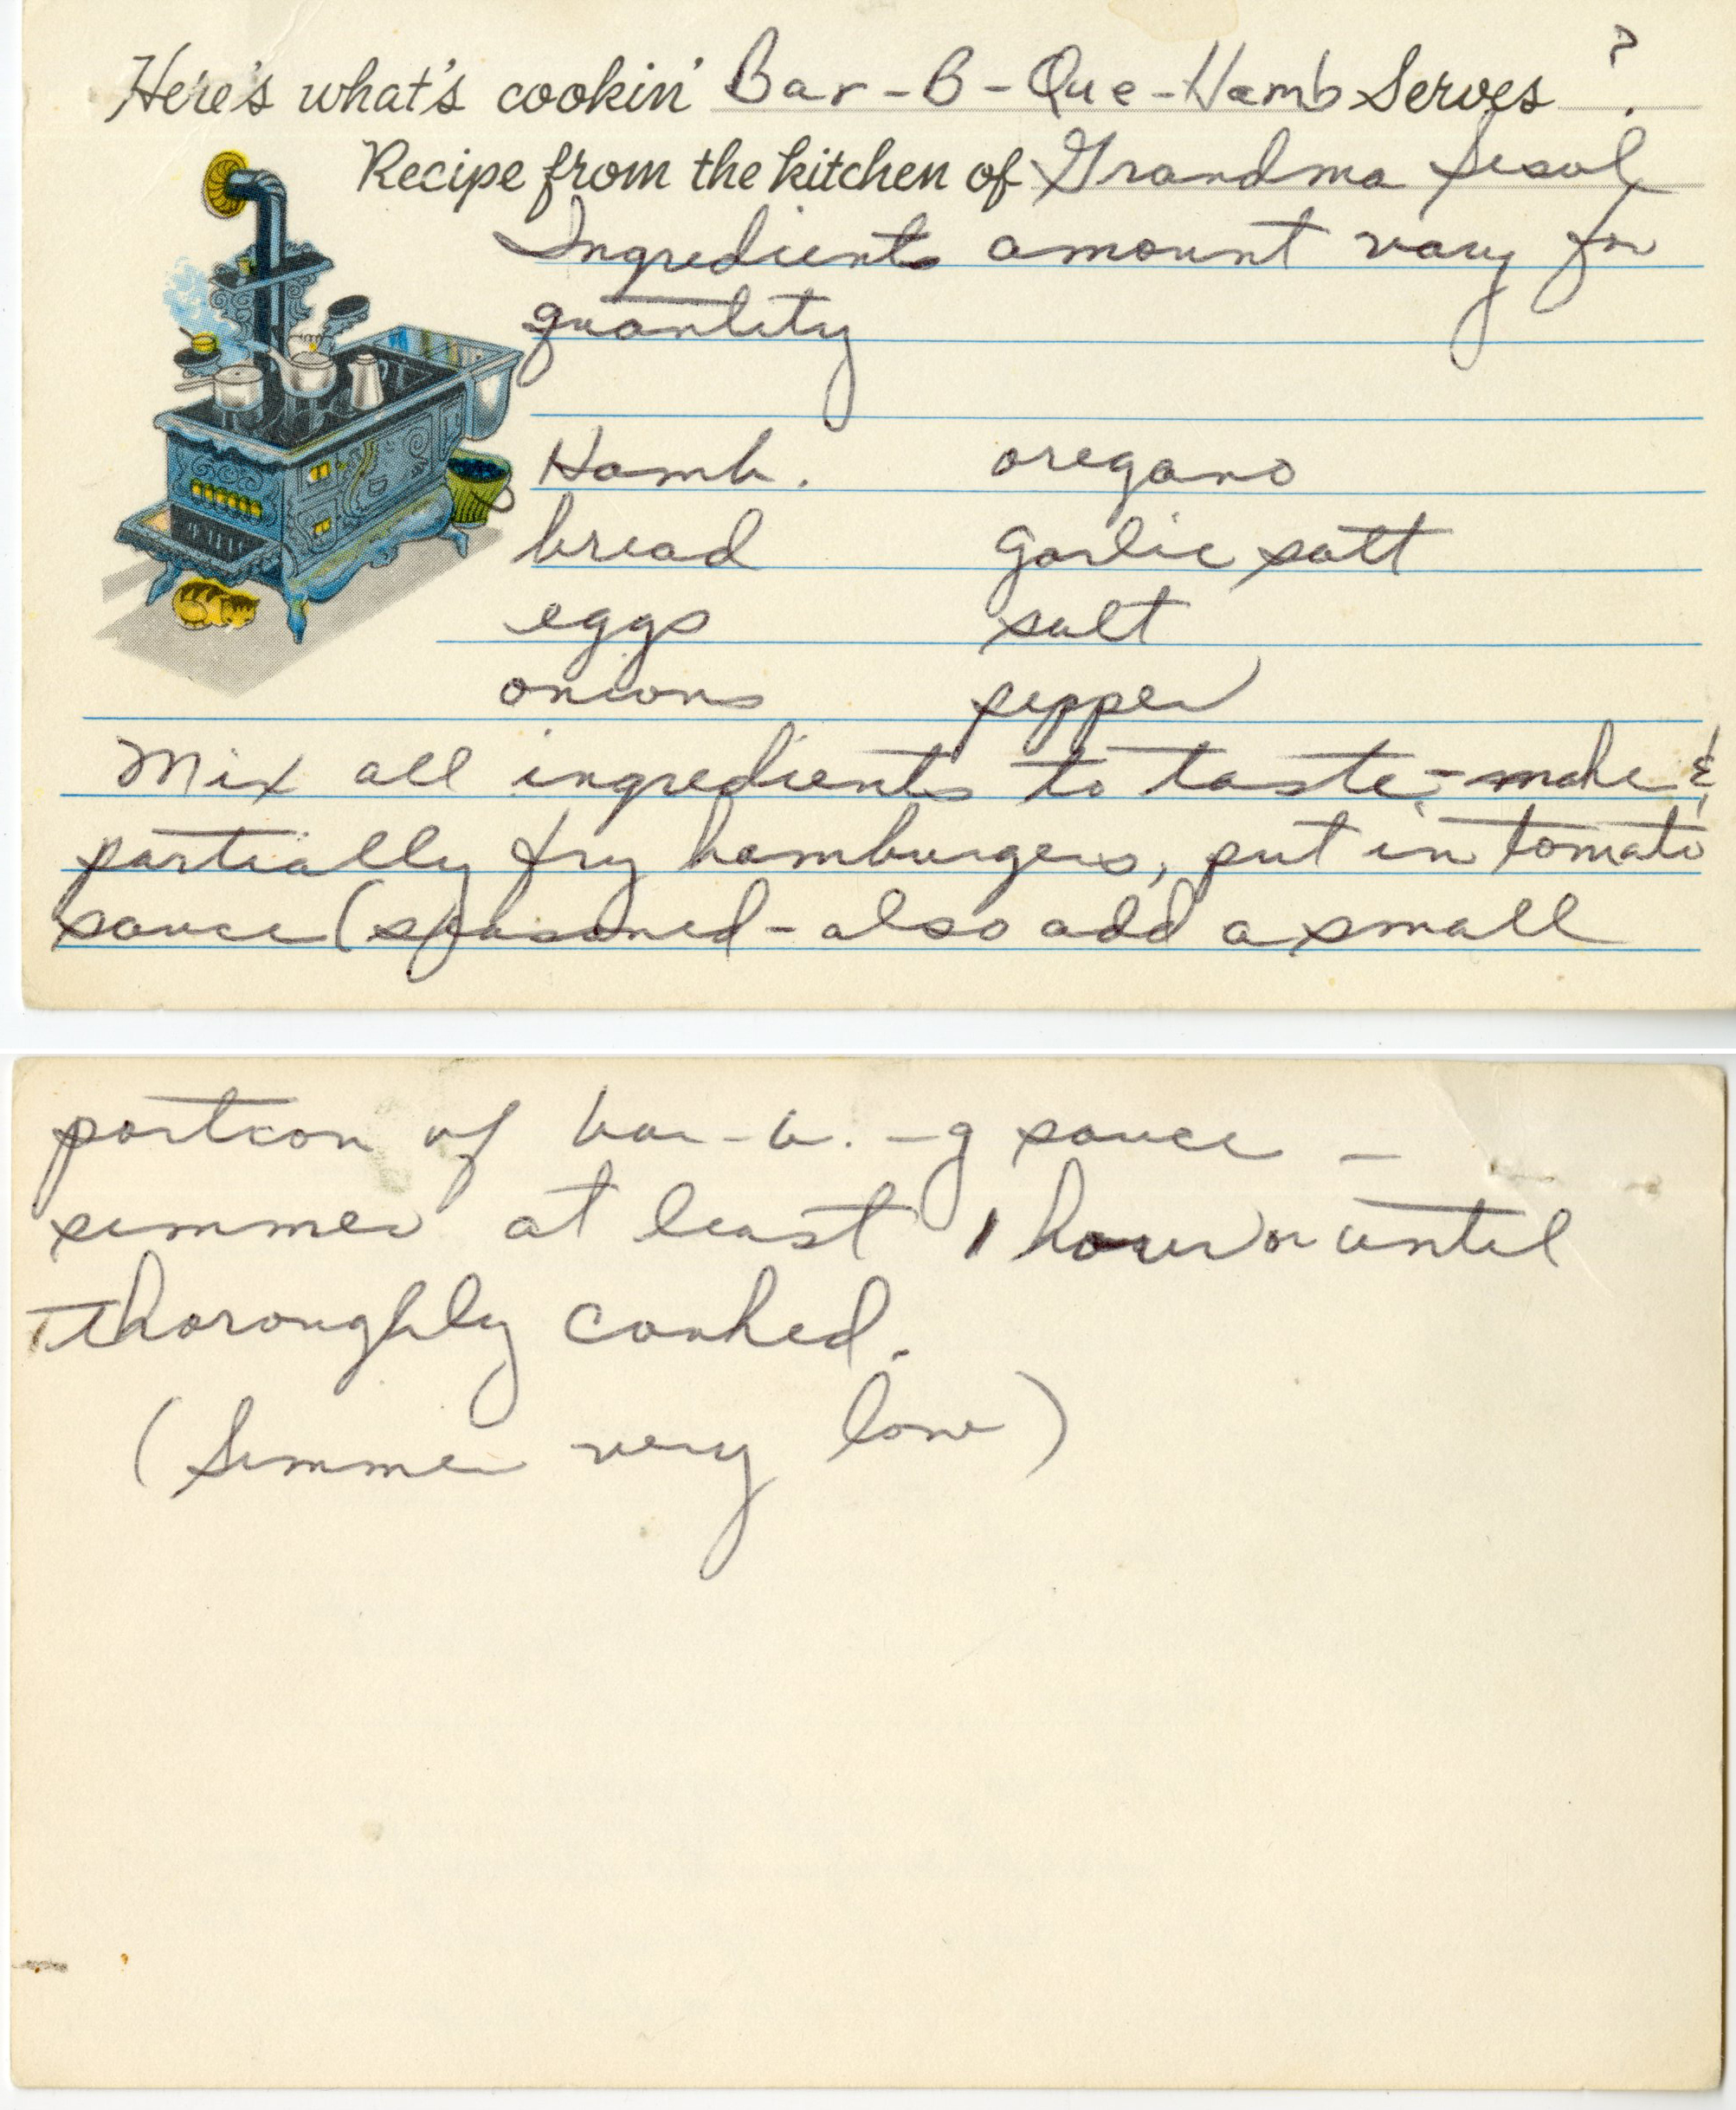 Here's what's cookin' Bar-B-Que-Hamb Serves ?.
Recipe from the kitchen of Grandma
Ingredients amount vary for
quantity
Hamb. oregano
bread Garlic salt
eggs salt
onions pepper
Mix all ingredients to taste - make &
partially fry hamburgers, put in tomato
sauce (seasoned - also add a small
portion of bar-b.-q sauce -
simmer at least 1 hour or until
thoroughly cooked.
(Simmer very low)